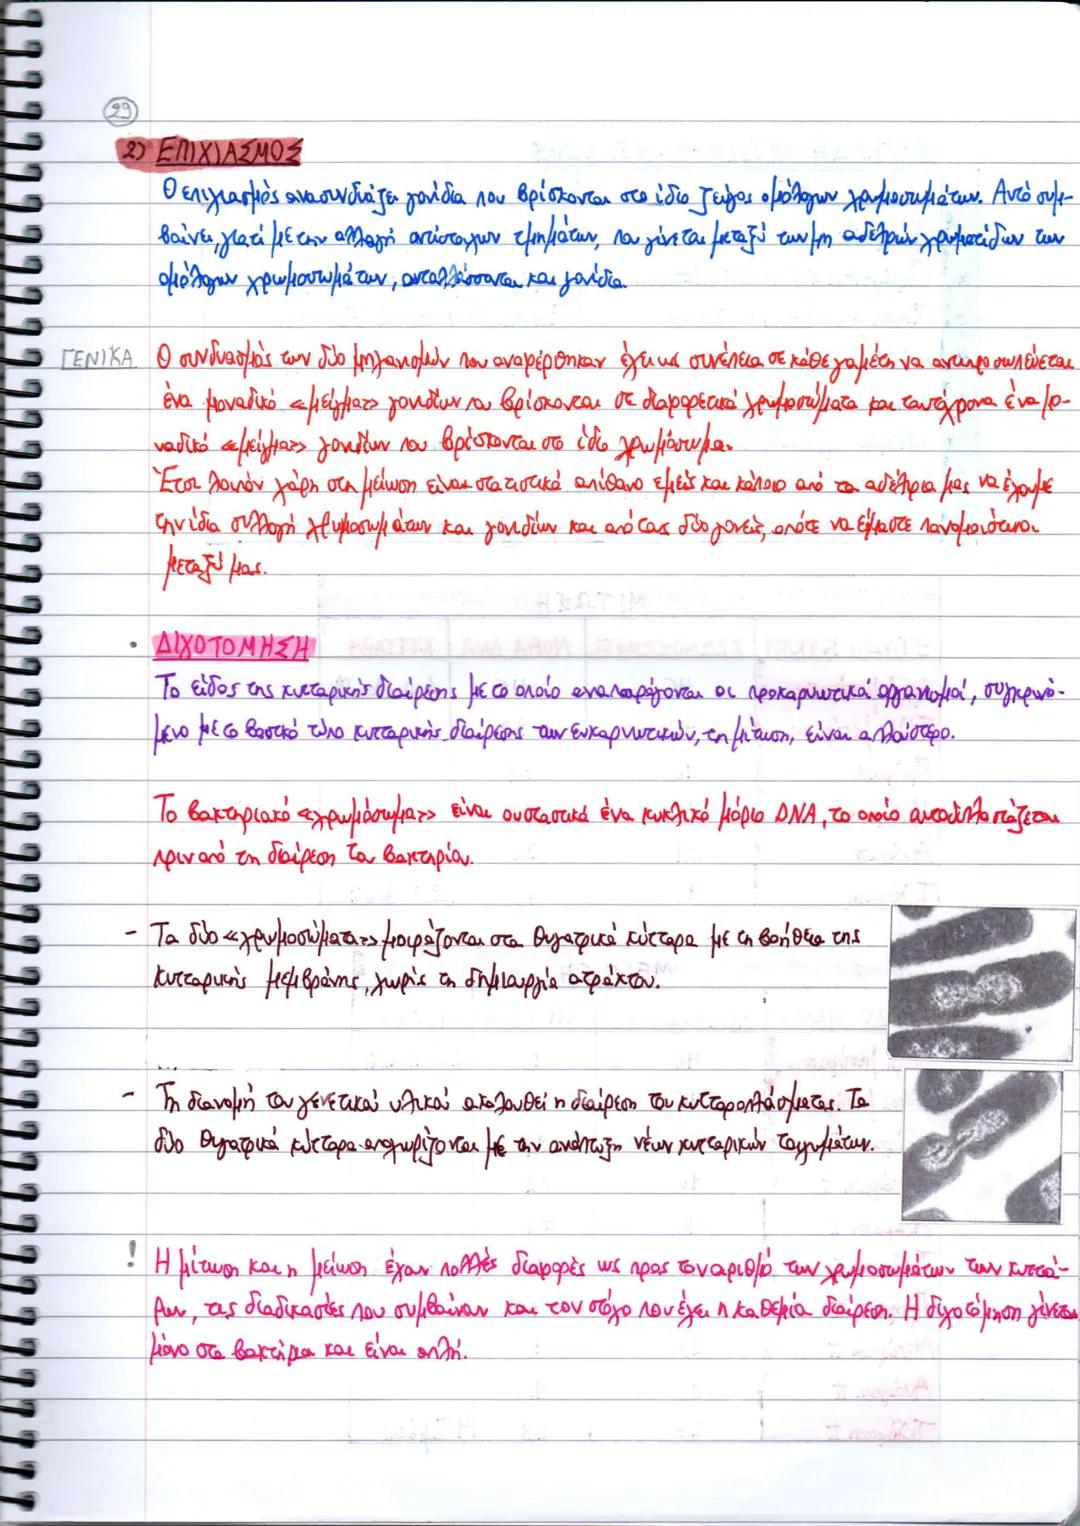 29
2) ΕΠΙΧΙΑΣΜΟΣ
Ο επιχιασμός ανασυνδυάζει γονίδια που βρίσκονται στο ίδιο ζεύγος ομόλογων χρωμοσωμάτων. Αυτό συμ-
βαίνει, γιατί με την αλλαγή αντίστοιχων τμημάτων, που γίνεται μεταξύ των μη αδελφών χρωματίδων των
ομόλογων χρωμοσωμάτων, ανταλλάσσονται και γονίδια.
ΓΕΝΙΚΑ Ο συνδυασμός των δύο μηχανισμών που αναφέρθηκαν έχει ως συνέπεια σε κάθε γαμέτη να αντιπροσωπεύεται
ένα μοναδικό «μείγμα» γονιδίων που βρίσκονται σε διαφορετικά χρωμοσώματα και ταυτόχρονα ένα μο-
ναδικό «μείγμα» γονιδίων που βρίσκονται στο ίδιο χρωμόσωμα.
Έτσι λοιπόν χάρη στη μείωση είναι στατιστικά απίθανο εμείς και κάποιο από τα αδέλφια μας να έχουμε
την ίδια συλλογή χρωμοσωμάτων και γονιδίων και από τους δύο γονείς, οπότε να είμαστε πανομοιότυποι
μεταξύ μας.
• ΔΙΧΟΤΟΜΗΣΗ
Το είδος της κυτταρικής διαίρεσης με το οποίο αναπαράγονται οι προκαρυωτικοί οργανισμοί, συγκρινό-
μενο με το βασικό τύπο κυτταρικής διαίρεσης των ευκαρυωτικών, τη μίτωση, είναι απλούστερο.
Το βακτηριακό «χρωμόσωμα» είναι ουσιαστικά ένα κυκλικό μόριο DNA, το οποίο αυτοδιπλασιάζεται
πριν από τη διαίρεση του βακτηρίου.
- Τα δύο «χρωμοσώματα» μοιράζονται στα θυγατρικά κύτταρα με τη βοήθεια της
κυτταρικής μεμβράνης, χωρίς τη δημιουργία ατράκτου.
- Τη διανομή του γενετικού υλικού ακολουθεί η διαίρεση του κυτταροπλάσματος. Τα
δύο θυγατρικά κύτταρα αποχωρίζονται με την ανάπτυξη νέων κυτταρικών τοιχωμάτων.
! Η μίτωση και η μείωση έχουν πολλές διαφορές ως προς τον αριθμό των χρωμοσωμάτων των κυττά-
ρων, τις διαδικασίες που συμβαίνουν και τον στόχο που έχει η καθεμία διαίρεση. Η διχοτόμηση γίνεται
μόνο στα βακτήρια και είναι απλή.